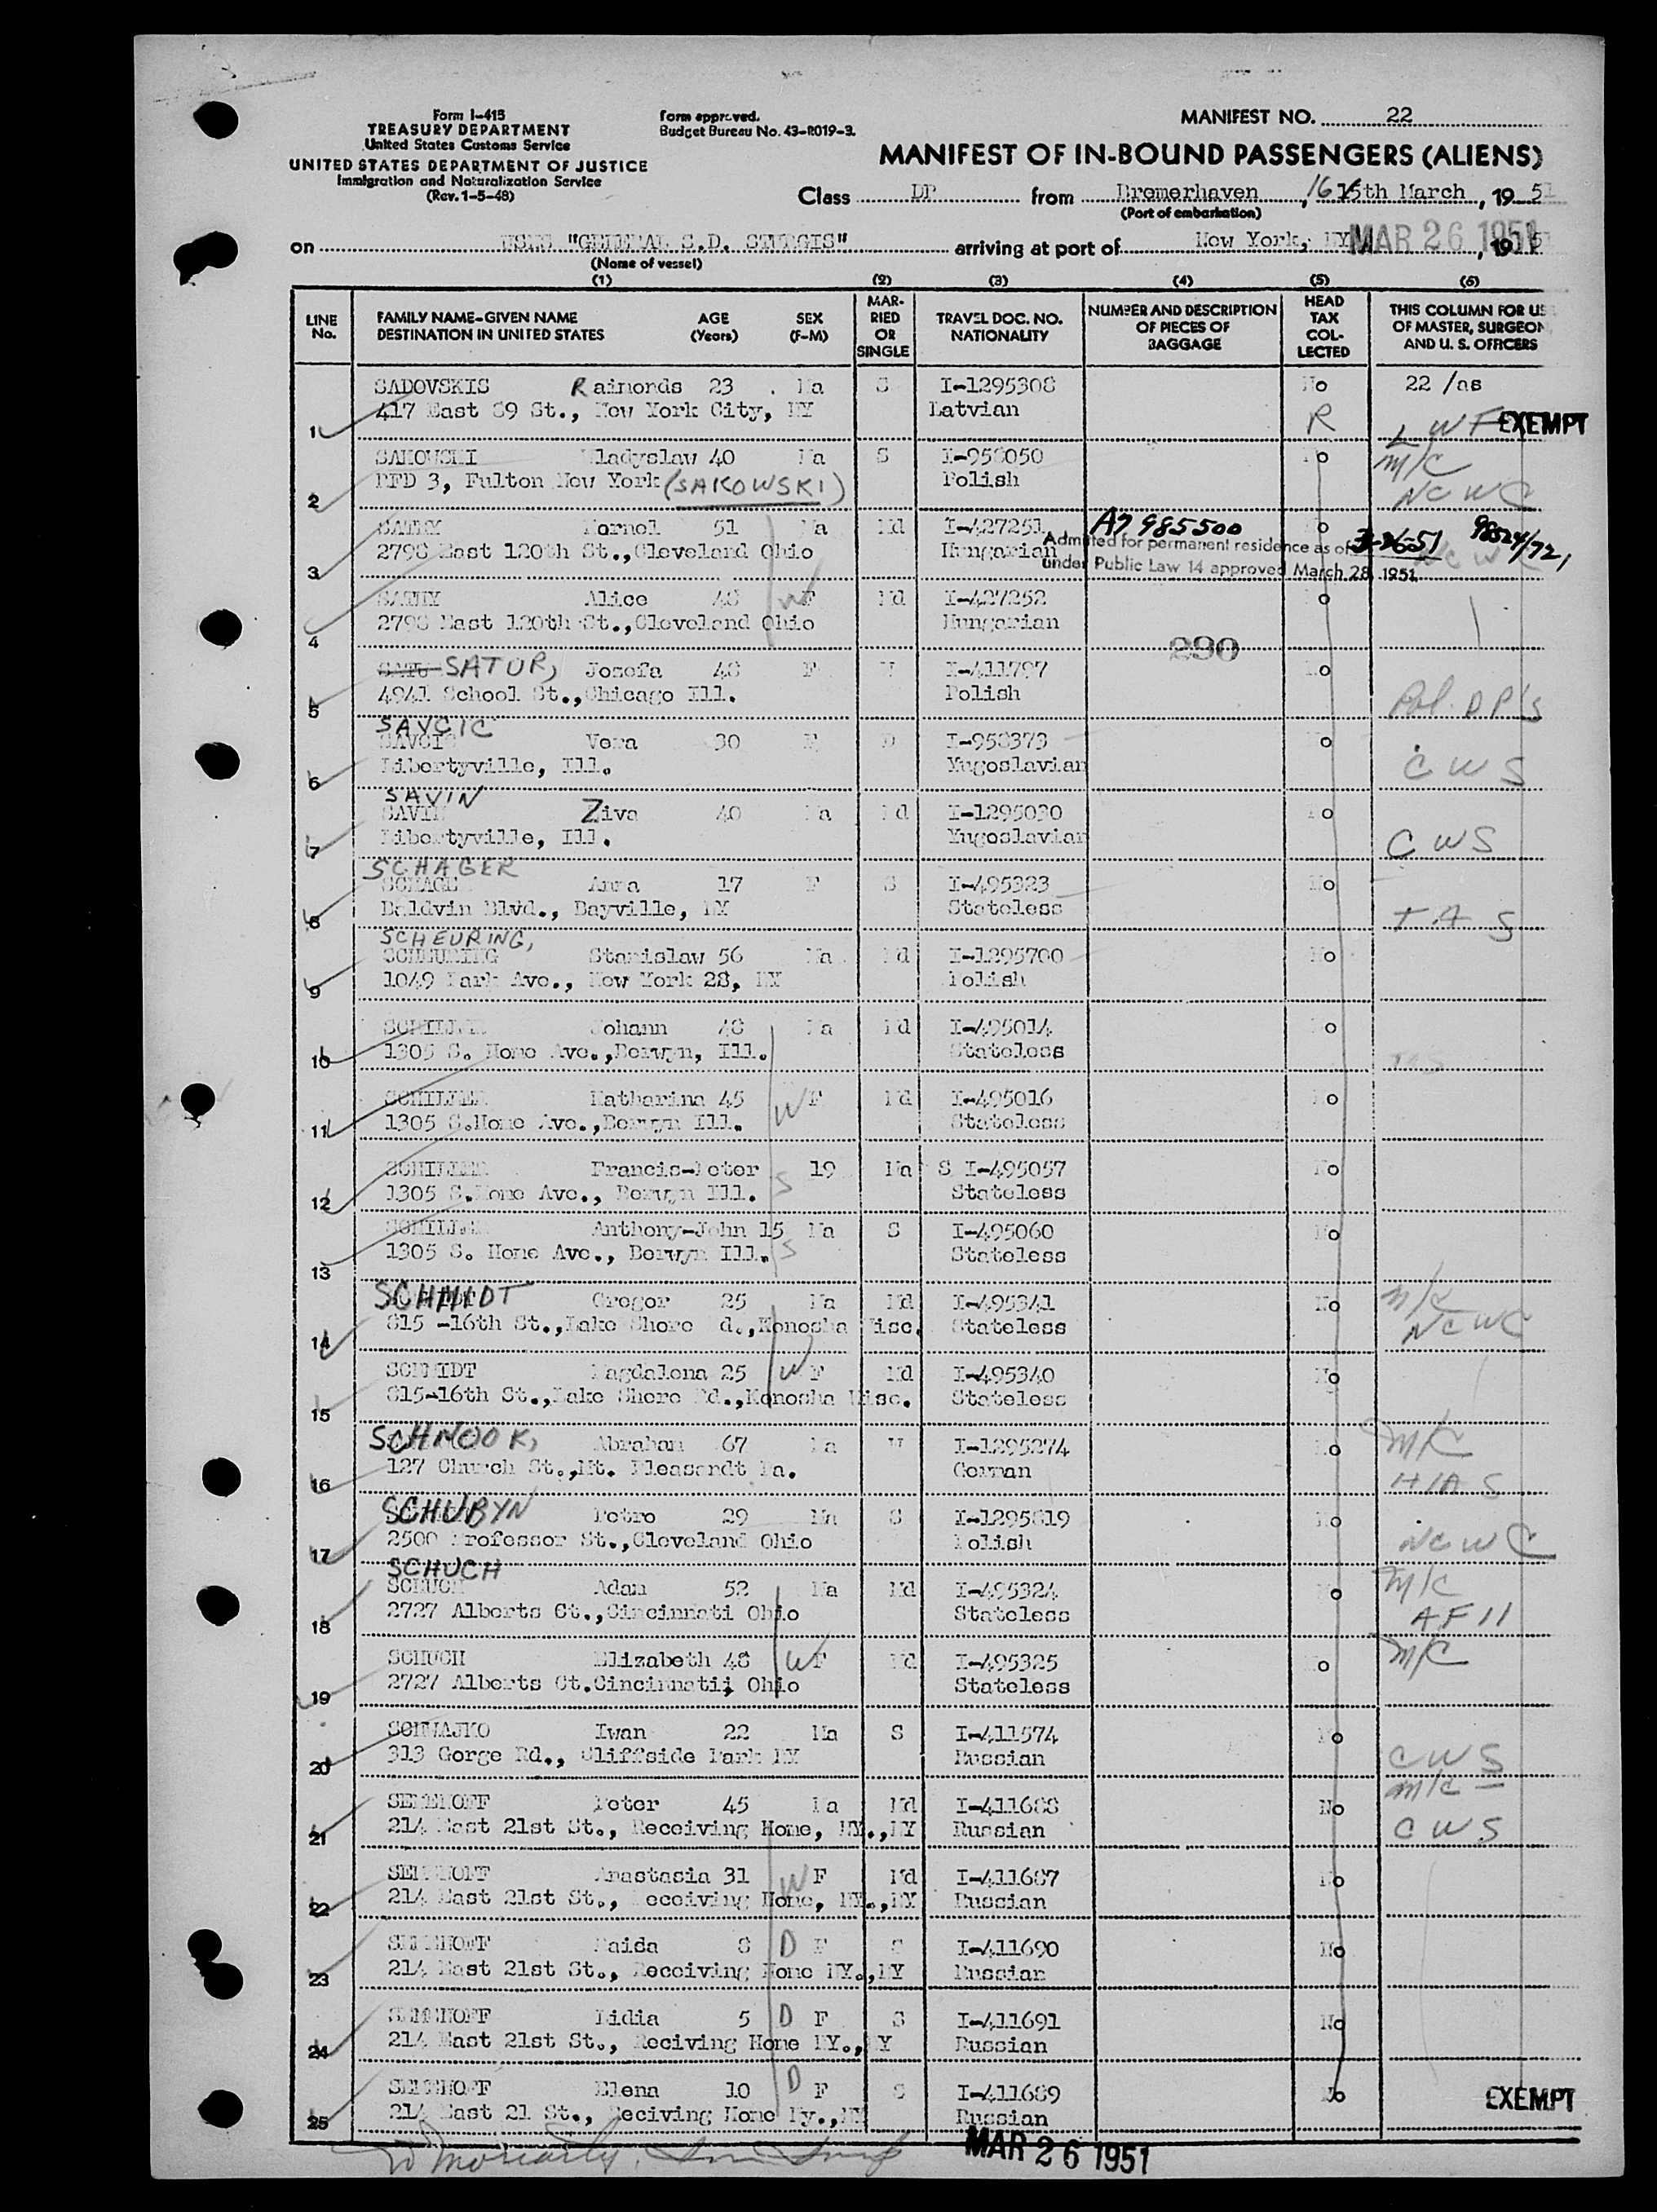 Form I-415
TREASURY DEPARTMENT
United States Customs Service
UNITED STATES DEPARTMENT OF JUSTICE
Immigration and Naturalization Service
(Rev. 1-5-48)
Form approved.
Budget Bureau No. 43-R019-3.
MANIFEST NO. 22
MANIFEST OF IN-BOUND PASSENGERS (ALIENS)
Class DP from Bremerhaven, 16 15th March, 1951
(Port of embarkation)
on USNS "GENERAL S.D. STURGIS" arriving at port of New York, NY MAR 26 1951, 1951
(Name of vessel)
(1) (2) (3) (4) (5) (6)
LINE No. FAMILY NAME-GIVEN NAME DESTINATION IN UNITED STATES AGE (Years) SEX (F-M) MARRIED OR SINGLE TRAVEL DOC. NO. NATIONALITY NUMBER AND DESCRIPTION OF PIECES OF BAGGAGE HEAD TAX COLLECTED THIS COLUMN FOR US OF MASTER, SURGEON AND U. S. OFFICERS
SADOVSKIS Raimonds 23 Ma S I-1295308 No 22 /as
1 417 East 89 St., New York City, NY Latvian R LWF EXEMPT
SAKOVSKI Wladyslaw 40 Ma S I-958050 No M/C
2 RFD 3, Fulton New York (SAKOWSKI) Polish NCWC
SATHY Kornel 51 Ma Md I-427251 A7985500 No
3 2798 East 120th St., Cleveland Ohio Hungarian Admitted for permanent residence as of 3-26-51 NCWC
under Public Law 14 approved March 28, 1951
SATHY Alice 48 W F Md I-427252 No
4 2798 East 120th St., Cleveland Ohio Hungarian
290
SATUR, Josefa 48 F W I-411797 No
5 4941 School St., Chicago Ill. Polish Pol. DP's
SAVCIC
Vera 30 F D I-958373 No
6 Libertyville, Ill. Yugoslavian CWS
SAVIN
SAVIN Ziva 40 Ma Md I-1295030 No
7 Libertyville, Ill. Yugoslavian CWS
SCHAGER
Anna 17 F S I-495323 No
8 Baldvin Blvd., Bayville, NY Stateless TAS
SCHEURING,
SCHEURING Stanislaw 56 Ma Md I-1295700 No
9 1049 Park Ave., New York 28, NY Polish
SCHILLER Johann 48 Ma Md I-495014 No
10 1305 S. Home Ave., Berwyn, Ill. Stateless
SCHILLER Katharina 45 W F Md I-495016 No
11 1305 S.Home Ave., Berwyn Ill. Stateless
SCHILLER Francis-Peter 19 Ma S I-495057 No
12 1305 S.Home Ave., Berwyn Ill. S Stateless
SCHILLER Anthony-John 15 Ma S I-495060 No
13 1305 S. Home Ave., Berwyn Ill. S Stateless
SCHMIDT Gregor 25 Ma Md I-495341 No M/C
14 815 -16th St., Lake Shore Rd., Kenosha Wisc. Stateless NCWC
SCHMIDT Magdalena 25 W F Md I-495340 No
15 815-16th St., Lake Shore Rd., Kenosha Wisc. Stateless
SCHNOOK, Abraham 67 Ma W I-1295274 No M/C
16 127 Church St., Mt. Pleasardt Pa. German HIAS
SCHUBYN Petro 29 Ma S I-1295819 No
17 2500 Professor St., Cleveland Ohio Polish NCWC
SCHUCH
SCHUCH Adam 52 Ma Md I-495324 No M/C
18 2727 Alberts Ct., Cincinnati Ohio Stateless
SCHUCH Elizabeth 48 W F Md I-495325 No M/C
19 2727 Alberts Ct.Cincinnati, Ohio Stateless
SCHWAJKO Iwan 22 Ma S I-411574 No
20 313 Gorge Rd., Cliffside Park NY Russian CWS
Peter 45 Ma Md I-411688 No M/C
21 214 East 21st St., Receiving Home, NY., NY Russian CWS
Anastasia 31 W F Md I-411687 No
22 214 East 21st St., Receiving Home, NY., NY Russian
Raida 8 D F S I-411690 No
23 214 East 21st St., Receiving Home NY., NY Russian
Lidia 5 D F S I-411691 No
24 214 East 21st St., Reciving Home NY., NY Russian
Elena 10 D F S I-411689 No EXEMPT
25 214 East 21 St., Reciving Home Ny., NY Russian
MAR 26 1951